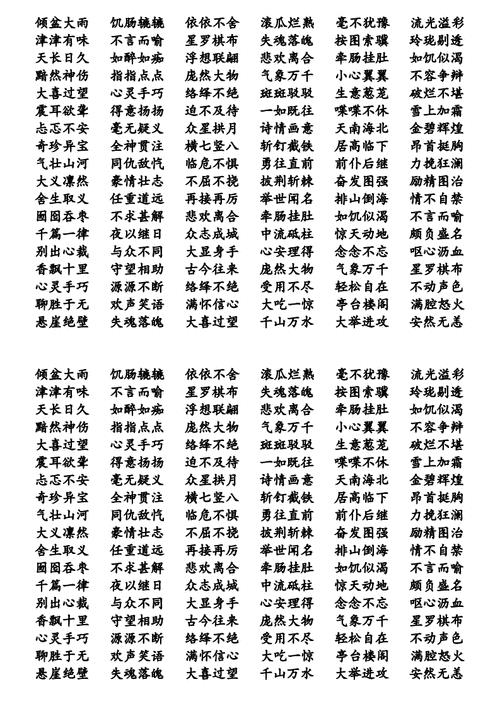 倾盆大雨 饥肠辘辘 依依不舍 滚瓜烂熟 毫不犹豫 流光溢彩
津津有味 不言而喻 星罗棋布 失魂落魄 按图索骥 玲珑剔透
天长日久 如醉如痴 浮想联翩 悲欢离合 牵肠挂肚 如饥似渴
黯然神伤 指指点点 庞然大物 气象万千 小心翼翼 不容争辩
大喜过望 心灵手巧 络绎不绝 斑斑驳驳 生意葱茏 破烂不堪
震耳欲聋 得意扬扬 迫不及待 一如既往 喋喋不休 雪上加霜
忐忑不安 毫无疑义 众星拱月 诗情画意 天南海北 金碧辉煌
奇珍异宝 全神贯注 横七竖八 斩钉截铁 居高临下 昂首挺胸
气壮山河 同仇敌忾 临危不惧 勇往直前 前仆后继 力挽狂澜
大义凛然 豪情壮志 不屈不挠 披荆斩棘 奋发图强 励精图治
舍生取义 任重道远 再接再厉 举世闻名 排山倒海 情不自禁
囫囵吞枣 不求甚解 悲欢离合 牵肠挂肚 如饥似渴 不言而喻
千篇一律 夜以继日 众志成城 中流砥柱 惊天动地 颇负盛名
别出心裁 与众不同 大显身手 心安理得 念念不忘 呕心沥血
香飘十里 守望相助 古今往来 庞然大物 气象万千 星罗棋布
心灵手巧 源源不断 络绎不绝 受用不尽 轻松自在 不动声色
聊胜于无 欢声笑语 满怀信心 大吃一惊 亭台楼阁 满腔怒火
悬崖绝壁 失魂落魄 大喜过望 千山万水 大举进攻 安然无恙
倾盆大雨 饥肠辘辘 依依不舍 滚瓜烂熟 毫不犹豫 流光溢彩
津津有味 不言而喻 星罗棋布 失魂落魄 按图索骥 玲珑剔透
天长日久 如醉如痴 浮想联翩 悲欢离合 牵肠挂肚 如饥似渴
黯然神伤 指指点点 庞然大物 气象万千 小心翼翼 不容争辩
大喜过望 心灵手巧 络绎不绝 斑斑驳驳 生意葱茏 破烂不堪
震耳欲聋 得意扬扬 迫不及待 一如既往 喋喋不休 雪上加霜
忐忑不安 毫无疑义 众星拱月 诗情画意 天南海北 金碧辉煌
奇珍异宝 全神贯注 横七竖八 斩钉截铁 居高临下 昂首挺胸
气壮山河 同仇敌忾 临危不惧 勇往直前 前仆后继 力挽狂澜
大义凛然 豪情壮志 不屈不挠 披荆斩棘 奋发图强 励精图治
舍生取义 任重道远 再接再厉 举世闻名 排山倒海 情不自禁
囫囵吞枣 不求甚解 悲欢离合 牵肠挂肚 如饥似渴 不言而喻
千篇一律 夜以继日 众志成城 中流砥柱 惊天动地 颇负盛名
别出心裁 与众不同 大显身手 心安理得 念念不忘 呕心沥血
香飘十里 守望相助 古今往来 庞然大物 气象万千 星罗棋布
心灵手巧 源源不断 络绎不绝 受用不尽 轻松自在 不动声色
聊胜于无 欢声笑语 满怀信心 大吃一惊 亭台楼阁 满腔怒火
悬崖绝壁 失魂落魄 大喜过望 千山万水 大举进攻 安然无恙